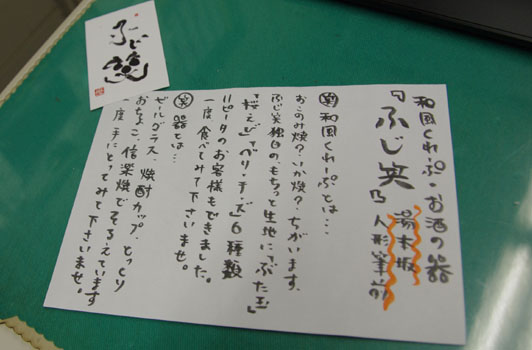 和風くれーぷ・お酒の器
ふじ笑
湯本坂
乃 人形筆前
笑 和風くれーぷとは・・・
おこのみ焼?いか焼?ちがいます、
ふじ笑独自の、もちっと生地に、「ぶた玉」
「桜えび」「べり・チーズ」6種類
リピータのお客様もできました。
一度、食べてみて下さいませ。
笑 器とは・・・
ビールグラス、焼酎カップ、とっくり
おちょこ、信楽焼でそろえています
一度、手にとってみて下さいませ。
ふじ笑